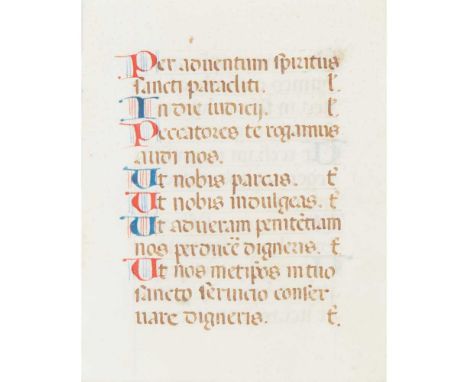 Per adventum spiritus
sancti paracliti. l.
In die iudicij. l.
Peccatores te rogamus
audi nos.
Ut nobis parcas. t̄
Ut nobis indulgeas. t̄
Ut ad veram penitētiam
nos perducē digneris. t̄
Ut nos metip̄os in tuo
sancto servicio conser
vare digneris. t̄.